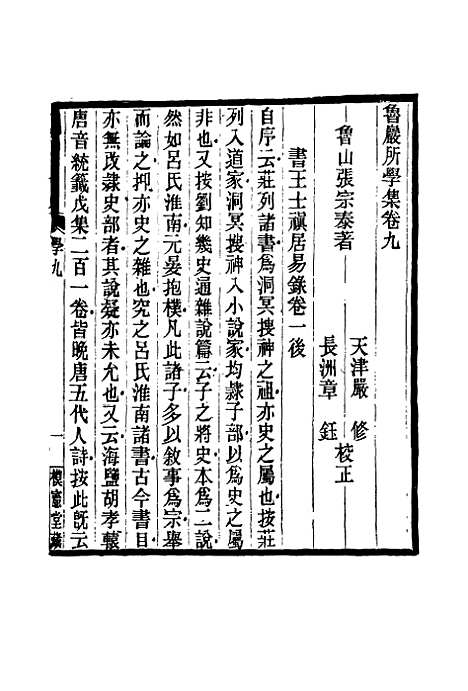 魯巖所學集卷九
魯山張宗泰著
天津嚴 修
長洲章 鈺
校正
書王士禛居易錄卷一後
自序云莊列諸書為洞冥搜神之祖亦史之屬也按莊
列入道家洞冥搜神入小說家均隸子部以為史之屬
非也又按劉知幾史通雜說篇云子之將史本為二說
然如呂氏淮南元晏抱樸凡此諸子多以敘事為宗舉
而論之抑亦史之雜也究之呂氏淮南諸書古今書目
亦無改隸史部者其說疑亦未允也又云海鹽胡孝轅
唐音統籤戊集二百一卷皆晚唐五代人詩按此既云
學九
一
模憲堂藏